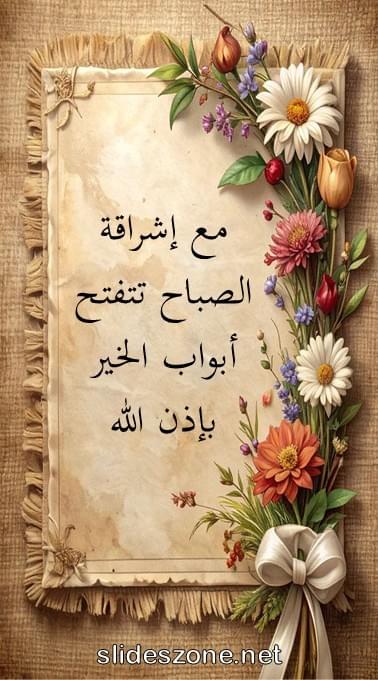 مع إشراقة
الصباح تتفتح
أبواب الخير
بإذن الله
slideszone.net